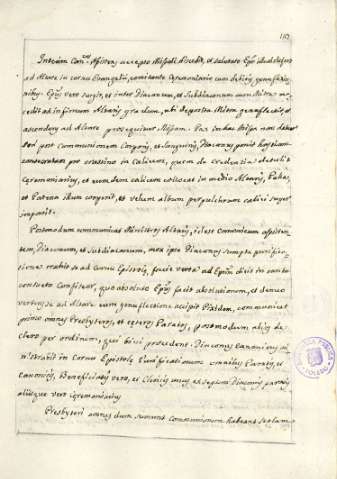 Interim Con.cus Assistens accepto Missali discedit, et salutato Epō illud defert
ad Altare in cornu Evangelii, comitante Ceremoniario cum debitis genuflexio
nibus. Epūs vero surgit, et inter Diaconum, et Subdiaconum cum Mitra ac
cedit ad infimum Altaris gradum, ubi deposita Mitra genuflectit, et
ascendens ad Altare prosequitur Missam. Pax in hac Missa non datur
sed post communionem Corporis, et Sanguinis Diaconus ponit hostiam
consecratam pro crastino in Calicem, quem de credentia detulit
Ceremoniarius, et eundem calicem collocat in medio Altaris, Palla,
et Patena illum cooperit, et velum album perpulchrum calici super
imponit.
Postmodum communicat Ministros Altaris, idest Canonicum assisten
tem, Diaconum, et Subdiaconum, mox ipse Diaconus sumpta purifica
tione in cornu Epistolę, facie versa ad Epūm dicit in cantu
consueto Confiteor, quo absoluto Epūs facit absolutionem, et denuo
vertens se ad Altare cum genuflectione accipit Pixidem, communicat
primo omnes Presbyteros, et ceteros Paratos, postmodum alios de
clero per ordinem, quasi procedens. Diaconus Canonicus mi
nistrabit in Cornu Epistolę Purificationem omnibus Paratis, et
Canonicis, Beneficiatis vero, et Clericis unus ex sex Diaconis paratis
aliisque vero Ceremoniarius
Presbyteri omnes dum sumunt Communionem habeant stolam